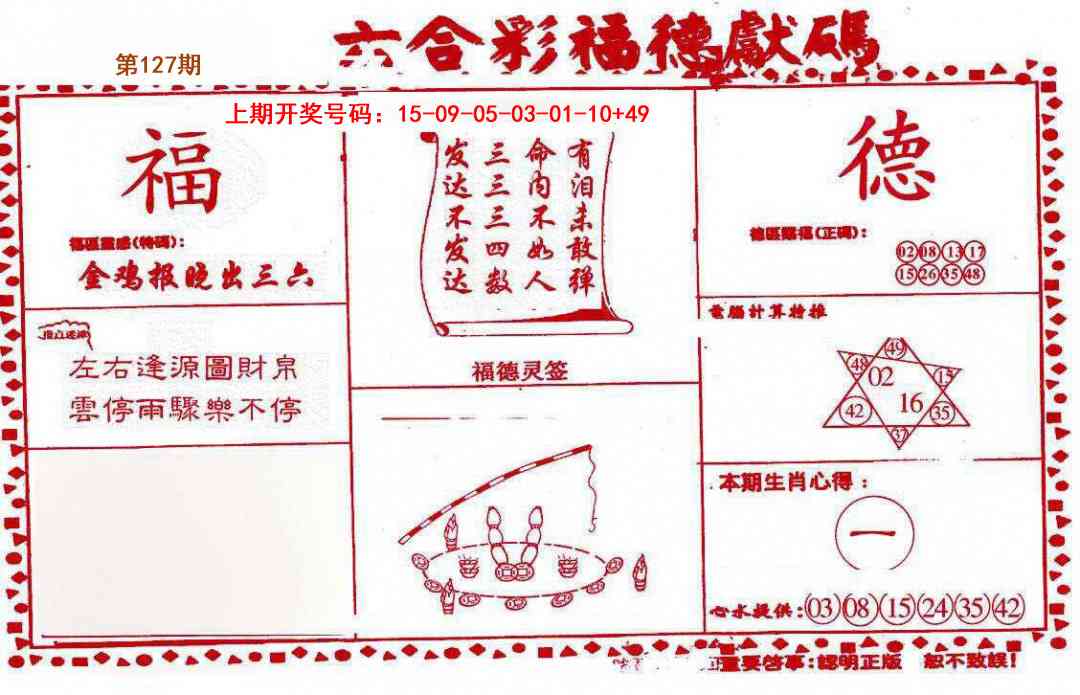 六合彩福德獻碼
第127期
上期开奖号码：15-09-05-03-01-10+49
福
金鸡报晓出三六
左右逢源圖財帛
雲停雨驟樂不停
有泪未敢弹
命内不如人
三三三四数
发达不发达
福德灵签
德
(正碼)：
02 08 13 17
15 26 35 48
電腦計算特推
49
48 02 15
42 16 35
37
本期生肖心得：
一
心水提供：03 08 15 24 35 42
重要啓事：認明正版 恕不致誤！